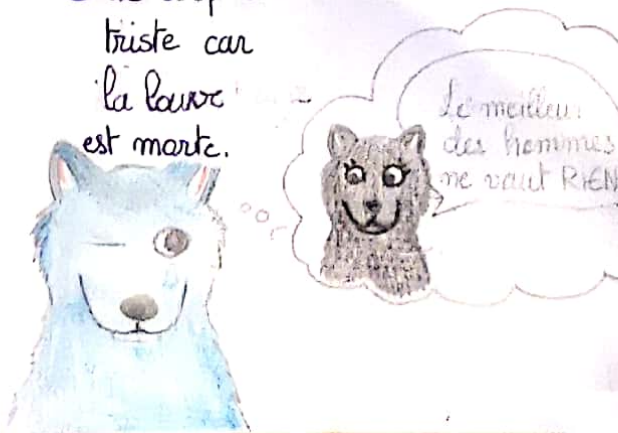 triste car
la louve
est morte.
Le meilleur
des hommes
ne vaut RIEN